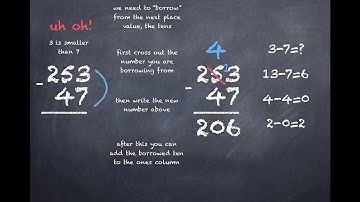 uh oh!
3 is smaller
than 7
253
- 47
we need to "borrow"
from the next place
value, the tens
first cross out the
number you are
borrowing from
then write the new
number above
after this you can
add the borrowed ten
to the ones column
4
253
- 47
206
3-7=?
13-7=6
4-4=0
2-0=2